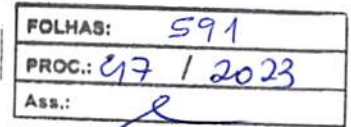 FOLHAS: 591
PROC.: 47 / 2023
Ass.: